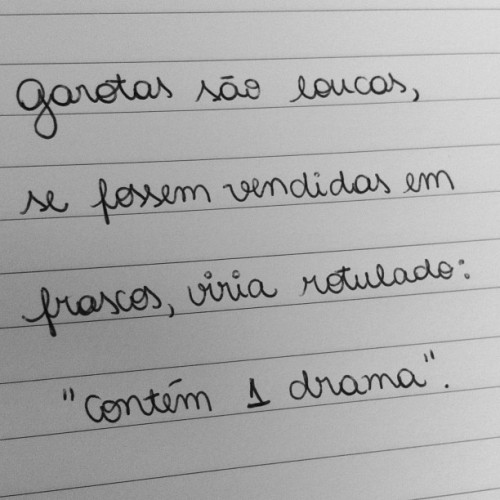 Garotas são loucas,
se fossem vendidas em
frascos, viria rotulado:
"contém 1 drama".